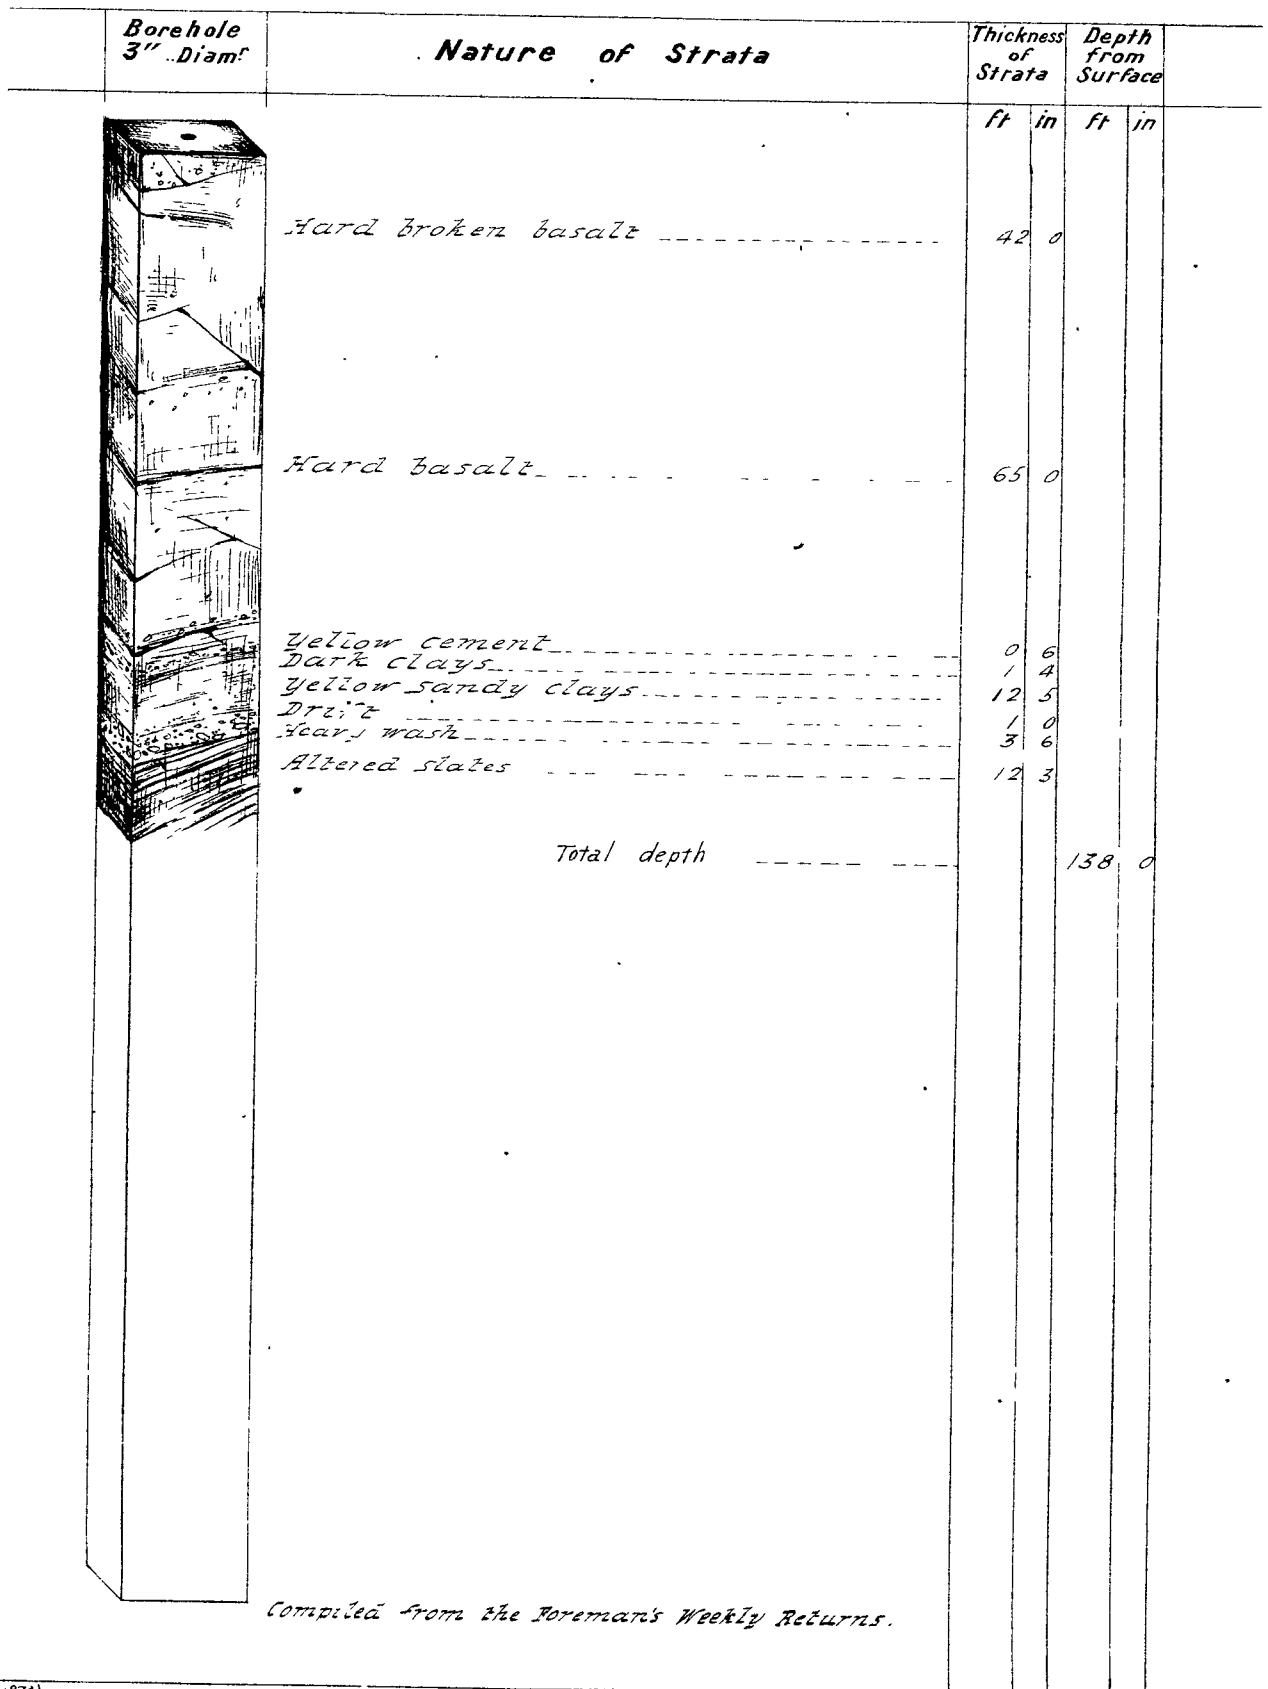 Borehole
3" Diamr
Nature of Strata
Thickness
of
Strata
Depth
from
Surface
ft in ft in
Hard broken basalt 42 0
Hard basalt 65 0
Yellow cement 0 6
Dark clays 1 4
Yellow sandy clays 12 5
Drift 1 0
Heavy wash 3 6
Altered slates 12 3
Total depth 138 0
Compiled from the Foreman's Weekly Returns.